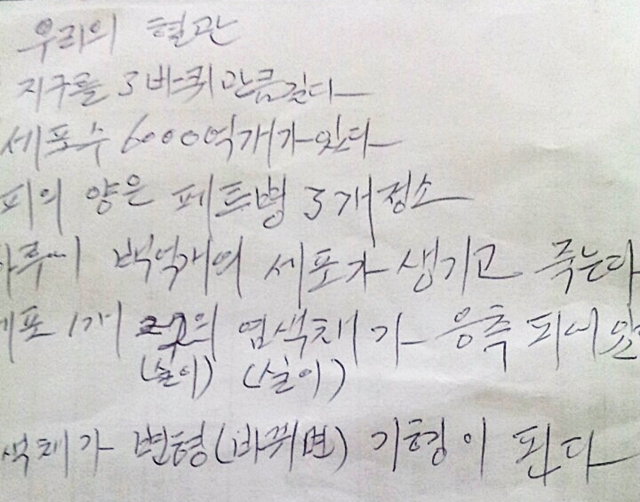 우리의 혈관
지구를 3바퀴만큼길다
세포수 6000억개가있다
피의 양은 페트병 3개정소
하루에 백억개의 세포가 생기고 죽는다
세포 1개 의 염색채가 응축 되어있
(실이) (실이)
색체가 변형(바뀌면) 기형이 된다